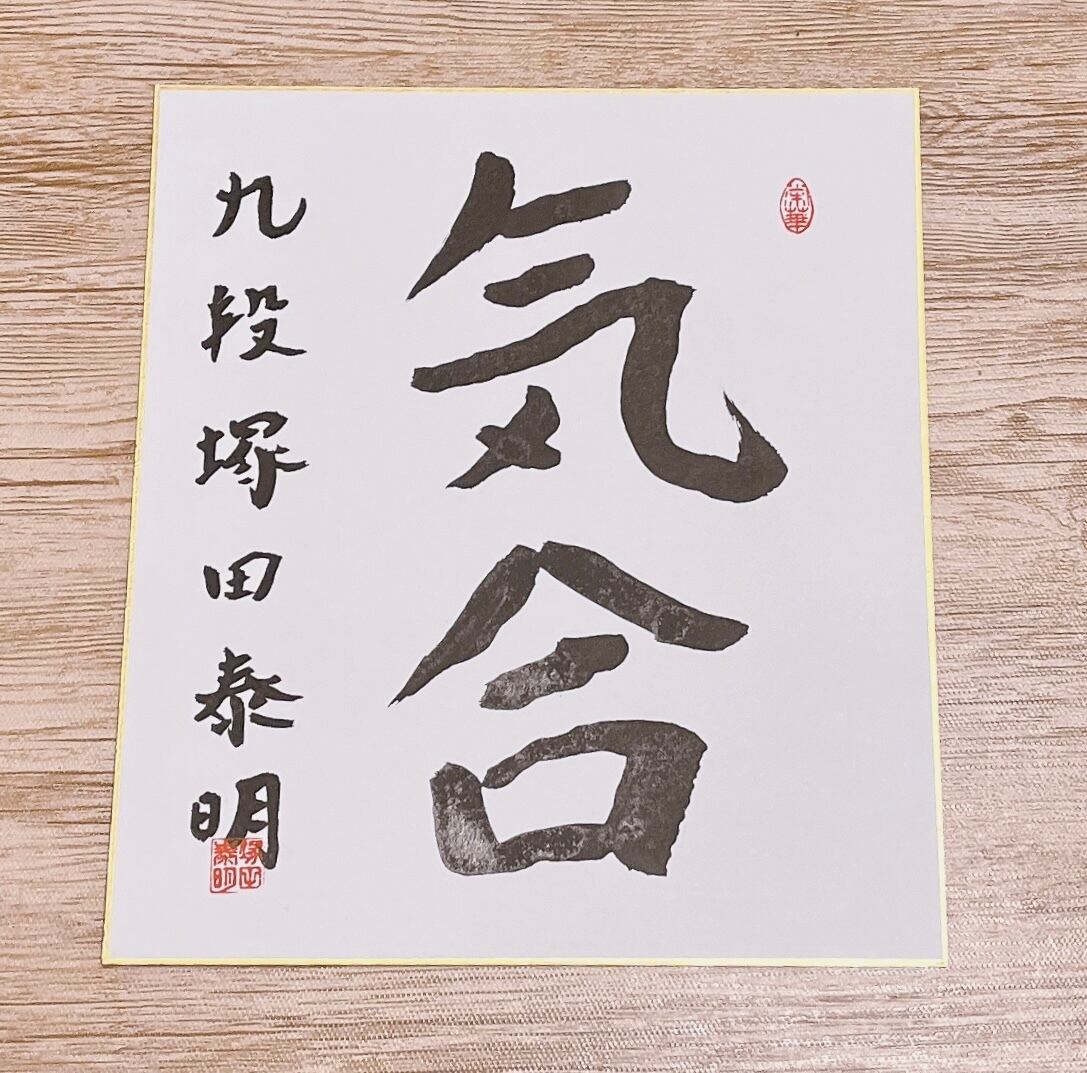 栄華
気合
九段塚田泰明
塚田
泰明